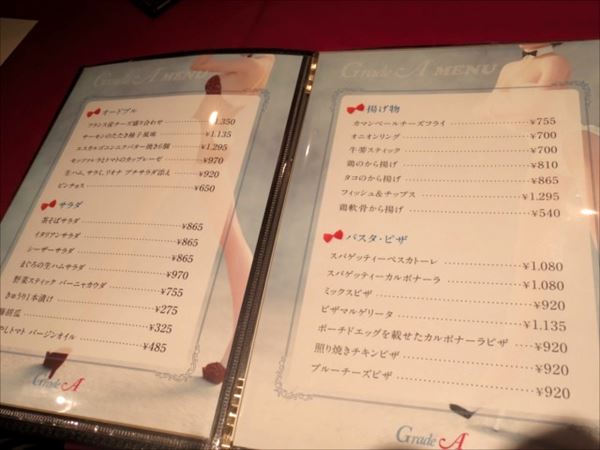 Grade A MENU
オードブル
フランス産チーズ盛り合わせ ¥1.350
サーモンのたたき柚子風味 ¥1.135
エスカルゴニンニクバター焼き6個 ¥1.295
モッツァレラとトマトのカップレーゼ ¥970
生ハム、サラミ、リオナ プチサラダ添え ¥920
ピンチョス ¥650
サラダ
茶そばサラダ ¥865
イタリアンサラダ ¥865
シーザーサラダ ¥865
まぐろの生ハムサラダ ¥970
野菜スティック バーニャカウダ ¥755
きゅうり1本漬け ¥275
¥325
やしトマト バージンオイル ¥485
Grade A
Grade A MENU
揚げ物
カマンベールチーズフライ ¥755
オニオンリング ¥700
牛蒡スティック ¥700
鶏のから揚げ ¥810
タコのから揚げ ¥865
フィッシュ&チップス ¥1.295
鶏軟骨から揚げ ¥540
パスタ・ピザ
スパゲッティーペスカトーレ ¥1.080
スパゲッティーカルボナーラ ¥1.080
ミックスピザ ¥920
ピザマルゲリータ ¥1.135
ポーチドエッグを載せたカルボナーラピザ ¥920
照り焼きチキンピザ ¥920
ブルーチーズピザ ¥920
Grade A